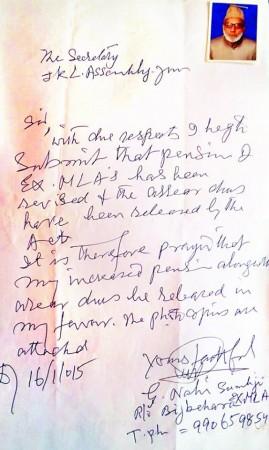 The Secretary
J&K L. Assembly. Jmu
Sir,
with due respects I begh
Submit that pension of
EX. MLA's has been
revised & the arrear dues
have been released by the
Act.
It is therefore prayed that
my increased pension alongwith
arear dues be released in
my favour. The photo copies are
attached
yours faithful
D) 16/1/015
G. Nabi
R/o Bijbehara EXMLA
T. ph = 990659854